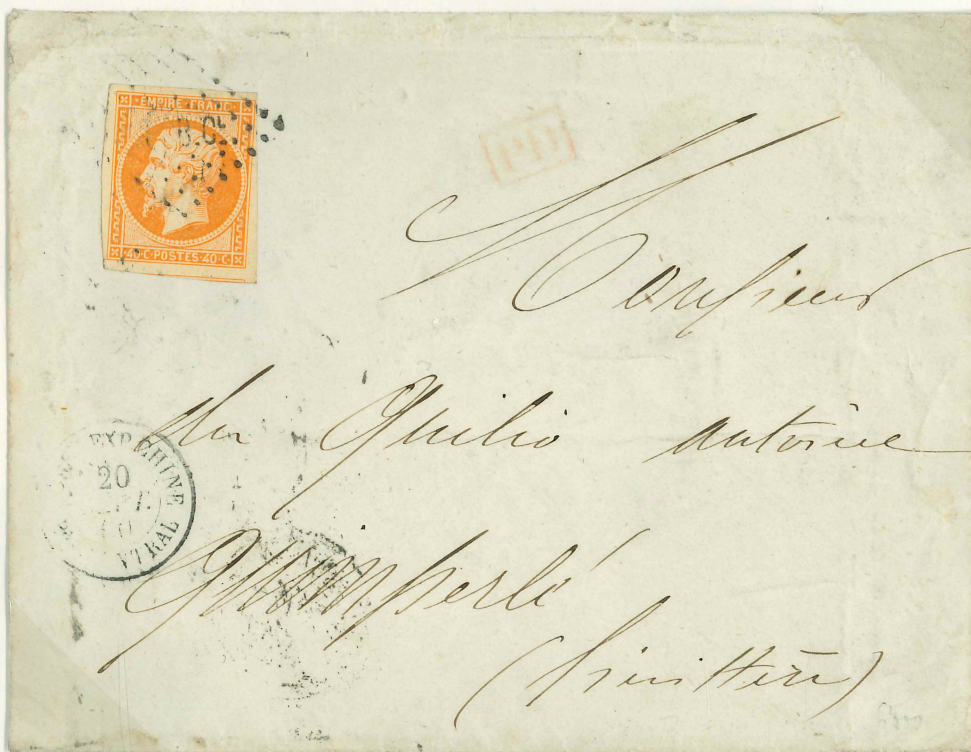 EMPIRE FRANC.
40·C·POSTES·40·C
PD
Monsieur
Du Quilio antoine
EXP CHINE
20
TRAL
Quimperlé
(finistère)